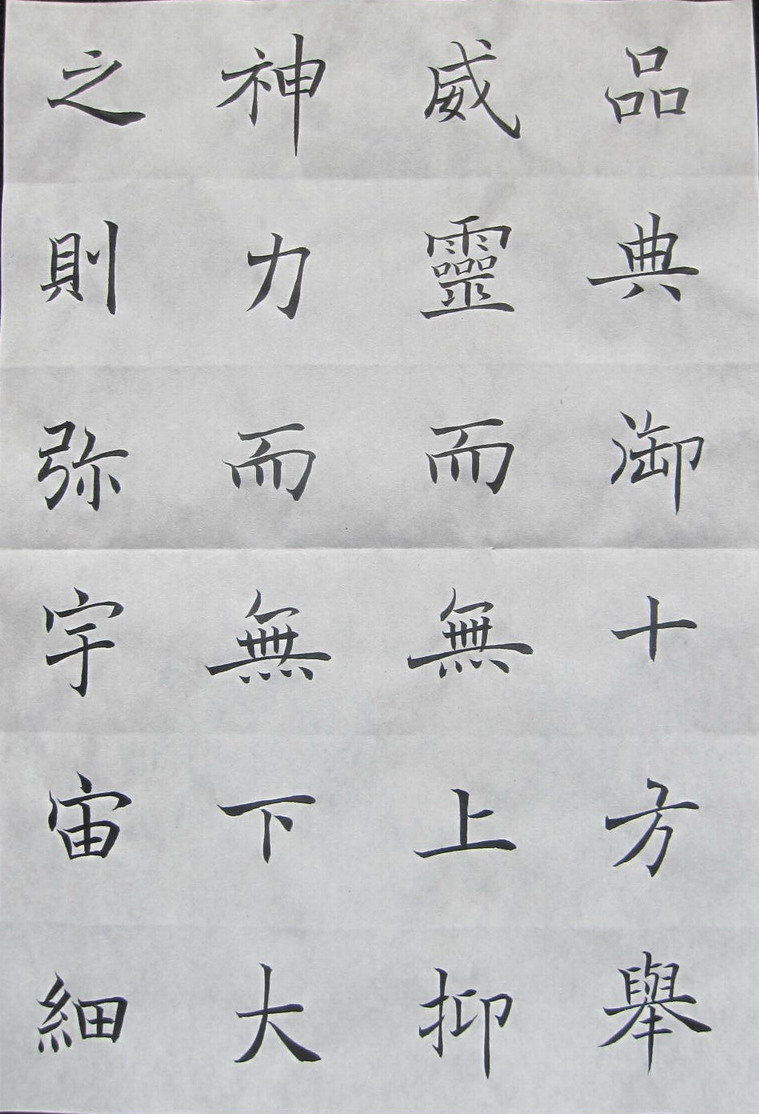 品典御十方舉
威靈而無上抑
神力而無下大
之則弥宇宙細